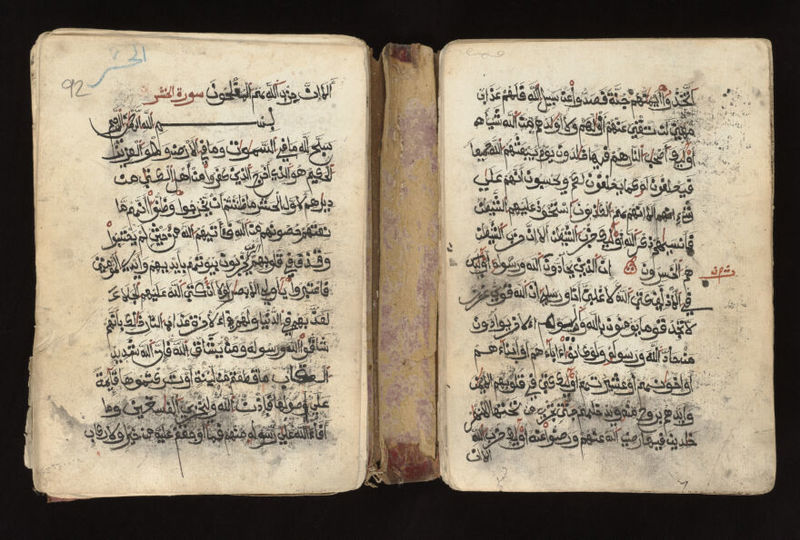 اتخذوا أيمنهم جنة فصدوا عن سبيل الله فلهم عذاب
مهين لن تغني عنهم أموالهم ولا أولدهم من الله شيئا
أوليك أصحب النار هم فيها خلدون يوم يبعثهم الله جميعا
فيحلفون له كما يحلفون لكم ويحسبون أنهم على
شيء ألا إنهم هم الكذبون استحوذ عليهم الشيطن
فأنسيهم ذكر الله أوليك حزب الشيطن ألا إن حزب الشيطن
هم الخسرون إن الذين يحادون الله ورسوله أوليك
في الأذلين كتب الله لأغلبن أنا ورسلي إن الله قوي عزيز
لا تجد قوما يومنون بالله واليوم الاخر يوادون
من حاد الله ورسوله ولو كانوا ءاباءهم أو أبناءهم
أو إخونهم أو عشيرتهم أوليك كتب في قلوبهم الايمن
وأيدهم بروح منه ويدخلهم جنت تجري من تحتها الانهر
خلدين فيها رضي الله عنهم ورضوا عنه أوليك حزب الله
ألا إن
92 الحشر
ألا إن حزب الله هم المفلحون سورة الحشر
بسم الله الرحمن الرحيم
سبح لله ما في السموت وما في الارض وهو العزيز
الحكيم هو الذي أخرج الذين كفروا من أهل الكتب من
ديرهم لأول الحشر ما ظننتم أن يخرجوا وظنوا أنهم ما
نعتهم حصونهم من الله فأتيهم الله من حيث لم يحتسبوا
وقذف في قلوبهم الرعب يخربون بيوتهم بأيديهم وأيدي المومنين
فاعتبروا يأولي الابصر ولولا أن كتب الله عليهم الجلاء
لعذبهم في الدنيا ولهم في الاخرة عذاب النار ذلك بأنهم
شاقوا الله ورسوله ومن يشاق الله فإن الله شديد
العقاب ما قطعتم من لينة أو تركتموها قايمة
على أصولها فبإذن الله وليخزي الفسقين وما
أفاء الله على رسوله منهم فما أوجفتم عليه من خيل ولا ركاب